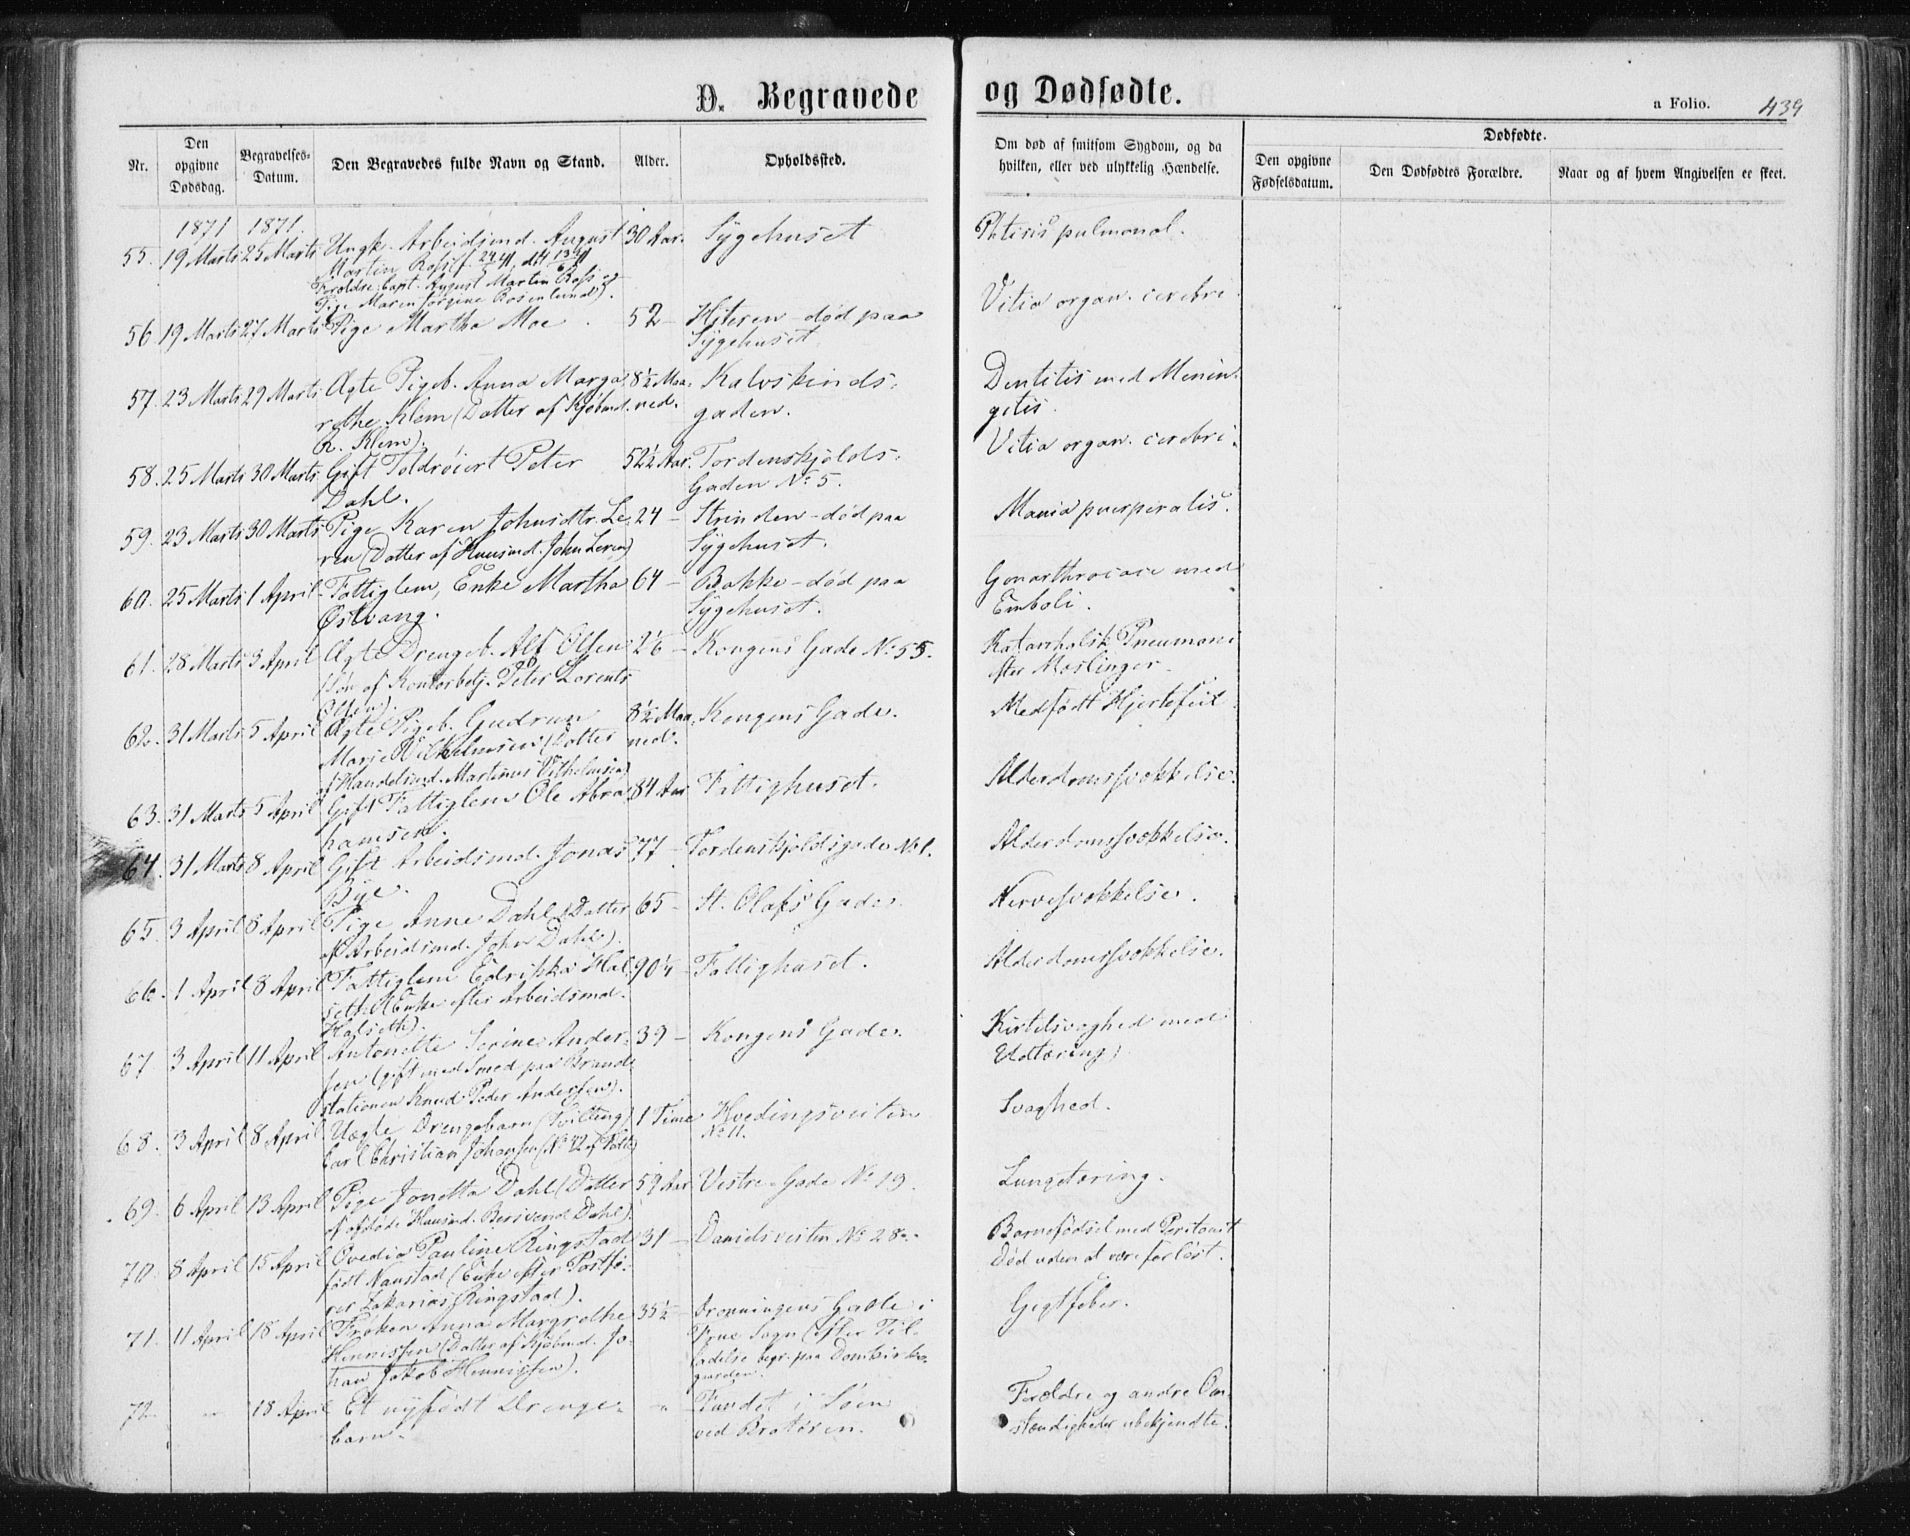 D. Begravede og Dødfødte.
a Folio. 439
Nr.
Den opgivne Dødsdag.
Begravelses-Datum.
Den Begravedes fulde Navn og Stand.
Alder.
Opholdssted.
Om død af smitsom Sygdom, og da hvilken, eller ved ulykkelig Hændelse.
Dødfødte.
Den opgivne Fødselsdatum.
Den Dødfødtes Forældre.
Naar og af hvem Angivelsen er skeet.
1871 1871.
55. 19 Marts 25 Marts Ungk. Arbeidsmd. August 30 Aar. Sygehuset Phtisis pulmonal.
Martin Ross
Forældre: Capt. August Martin Ross og
Pige Maren Jørgine Rosenlund).
56. 19 Marts 27 Marts Pige Martha Moe 52 – Hiteren – død paa Vitia organ. cerebri
Sygehuset.
57. 23 Marts 29 Marts Ægte Pigeb. Anna Marga 8½ Maa- Kalvskinds- Dentitis med Menin-
rethe Klem (Datter af Kjøbmd. ned. gaden. gitis.
Klem).
58. 25 Marts 30 Marts Gift Toldrøiert Peter 52½ Aar. Tordenskjolds- Vitia organ. cerebri.
Dahl. Gaden No 5.
59. 23 Marts 30 Marts Pige Karen Johnsdtr. Le- 24 – Strinden – død paa Mania puerperalis.
ren (Datter af Huusmd. John Leren) Sygehuset.
60. 25 Marts 1 April Fattiglem, Enke Martha 64 – Bakke – død paa Gonarthrocace med
Østvang. Sygehuset. Emboli.
61. 28 Marts 3 April Ægte Drengeb. Alf Olsen 2⅙ – Kongens Gade No 55. Katarrhalsk Pneumoni
(Søn af Kontorbetj. Peter Lorents efter Mæslinger.
Olsen).
62. 31 Marts 5 April Ægte Pigeb. Gudrun 8½ Maa- Kongens Gade. Medfødt Hjertefeil.
Marie Vilhelmsen (Datter ned.
af Handelsmd. Martinus Vilhelmsen)
63. 31 Marts 5 April Gift Fattiglem Ole Abra- 84 Aar Fattighuset. Alderdomssvækkelse.
hamsen.
64. 31 Marts 8 April Gift Arbeidsmd. Jonas 77 – Tordenskjoldsgade No 1. Alderdomssvækkelse.
Bye.
65. 3 April 8 April Pige Anne Dahl (Datter 65 – St. Olafs Gade. Nervesvækkelse.
af Arbeidsmd. John Dahl).
66. 1 April 8 April Fattiglem Edrikka Hal- 90¼ – Fattighuset. Alderdomssvækkelse.
seth (Enke efter Arbeidsmd.
Halseth).
67 3 April 11 April Antonette Serine Ander- 39 – Kongens Gade. Kirtelsvaghed med
sen (gift med Smed paa Brand- Udtæring.
stationen Knud Peder Andersen).
68. 3 April 8 April Uægte Drengebarn (Tvilling) 1 Time Hvedingsveiten Svaghed.
Carl Christian Johansen (No 42 af Fødte) No 11.
69. 6 April 13 April Pige Jonetta Dahl (Datter 59 Aar Vestre Gade No 19. Lungetæring.
af afdøde Huusmd. Dahl).
70. 8 April 15 April Ovedia Pauline Ringstad 31 – Davidsveiten No 28. Barnefødsel med Peritonit
født Naustad (Enke efter Postfø- Død uden at være forløst.
rer Zakarias Ringstad).
71. 11 April 18 April Frøken Anna Margrethe 35½ – Dronningens Gade i Gigtfeber.
Hennissen (Datter af Kjøbmd. Jo- Frue Sogn (efter Til-
han Jakob Hennissen). ladelse begr. paa Domkirke-
gaarden.
72. – 18 April Et nyfødt Drenge- – Fundet i Søen Forældre og andre Om-
barn. ved Bratøren. stændigheder ubekjendte.